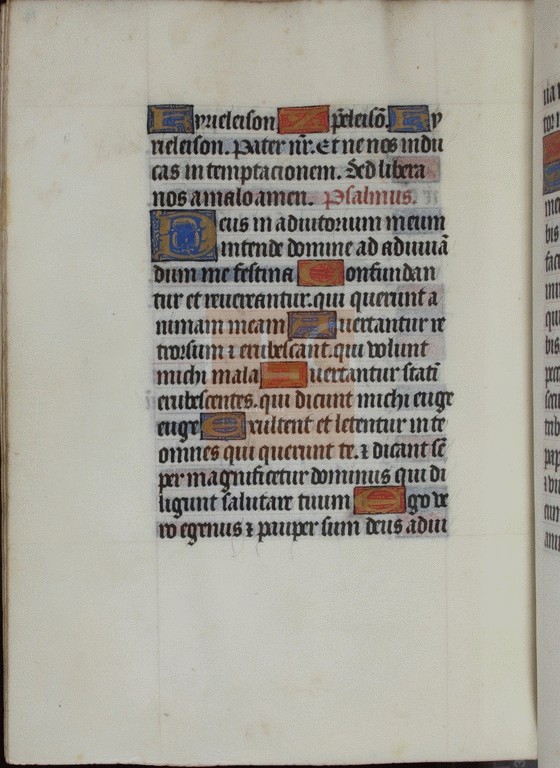 Kyrieleison Xp̄eleisō. Ky
rieleison. Pater nr̄. Et ne nos indu
cas in temptacionem. Sed libera
nos a malo amen. Psalmus.
Deus in adiutorium meum
intende domine ad adiuuā
dum me festina Confundan
tur et reuereantur. qui querunt a
nimam meam Auertantur re
trorsum ⁊ erubescant. qui volunt
michi mala Auertantur statī
erubescentes. qui dicunt michi euge
euge Exultent et letentur in te
omnes qui querunt te. ⁊ dicant sē
per magnificetur dominus qui di
ligunt salutare tuum Ego ve
ro egenus ⁊ pauper sum deus adiu